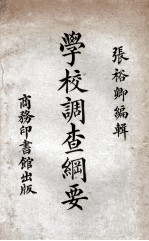 張裕卿編輯
學校調查綱要
商務印書館出版